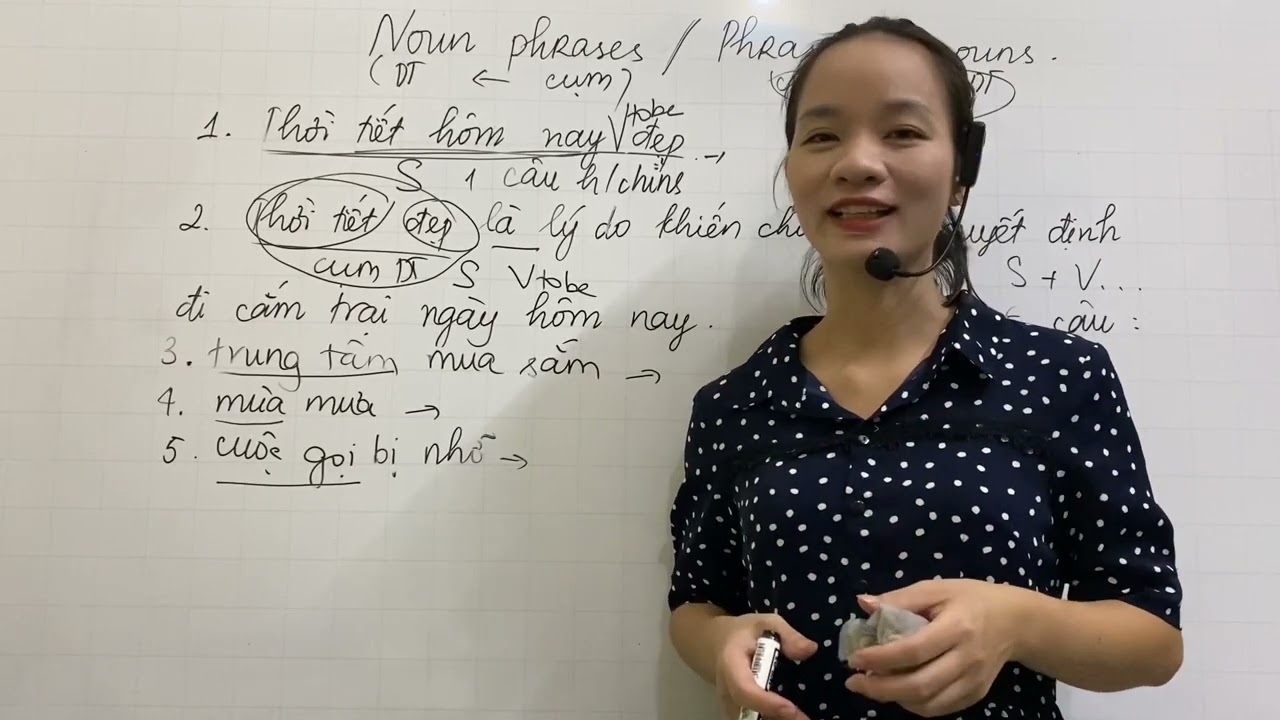 Noun phrases / Phra ouns.
(DT ← cụm) DT
V tobe
1. Thời tiết hôm nay đẹp. →
S 1 câu h/chỉnh
2. Thời tiết / đẹp là lý do khiến ch uyết định
cụm DT S V tobe S + V...
đi cắm trại ngày hôm nay. câu :
3. trung tâm mua sắm →
4. mùa mưa →
5. cuộc gọi bị nhỡ →